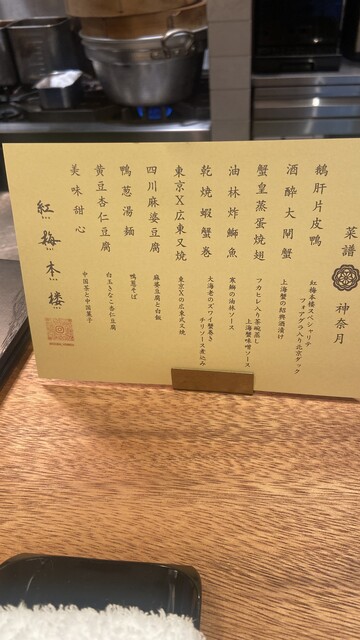 菜譜
神奈月
鵝肝片皮鴨
紅梅本楼スペシャリテ
フォアグラ入り北京ダック
酒酔大閘蟹
上海蟹の紹興酒漬け
蟹皇蒸蛋焼翅
フカヒレ入り茶碗蒸し
上海蟹味噌ソース
油林炸鰤魚
寒鰤の油林ソース
乾焼蝦蟹巻
大海老のズワイ蟹巻き
チリソース煮込み
東京X広東叉焼
東京Xの広東式叉焼
四川麻婆豆腐
麻婆豆腐と白飯
鴨葱湯麺
鴨葱そば
黄豆杏仁豆腐
白玉きなこ杏仁豆腐
美味甜心
中国茶と中国菓子
紅梅本楼